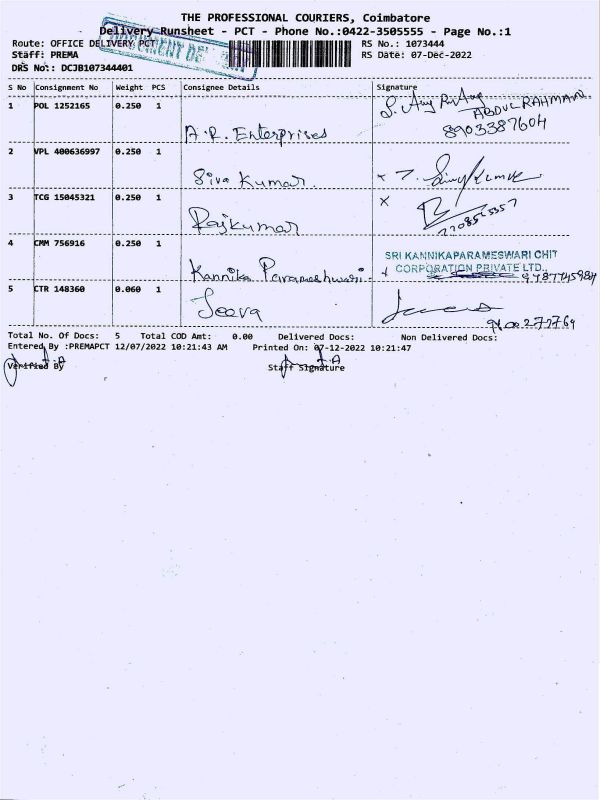 THE PROFESSIONAL COURIERS, Coimbatore
Delivery Runsheet - PCT - Phone No.:0422-3505555 - Page No.:1
Route: OFFICE DELIVERY PCT RS No.: 1073444
Staff: PREMA RS Date: 07-Dec-2022
DRS No:: DCJB107344401
S No Consignment No Weight PCS Consignee Details Signature
1 POL 1252165 0.250 1
A.R. Enterprises ABDUL RAHMAN
8903387604
2 VPL 400636997 0.250 1
Siva Kumar.
3 TCG 15045321 0.250 1 X
Rajkumar
4 CMM 756916 0.250 1
SRI KANNIKAPARAMESWARI CHIT
CORPORATION PRIVATE LTD.,
Kannika Parameshwari
5 CTR 148360 0.060 1
Jeeva
Total No. Of Docs: 5 Total COD Amt: 0.00 Delivered Docs: Non Delivered Docs:
Entered By :PREMAPCT 12/07/2022 10:21:43 AM Printed On: 07-12-2022 10:21:47
Verified By Staff Signature